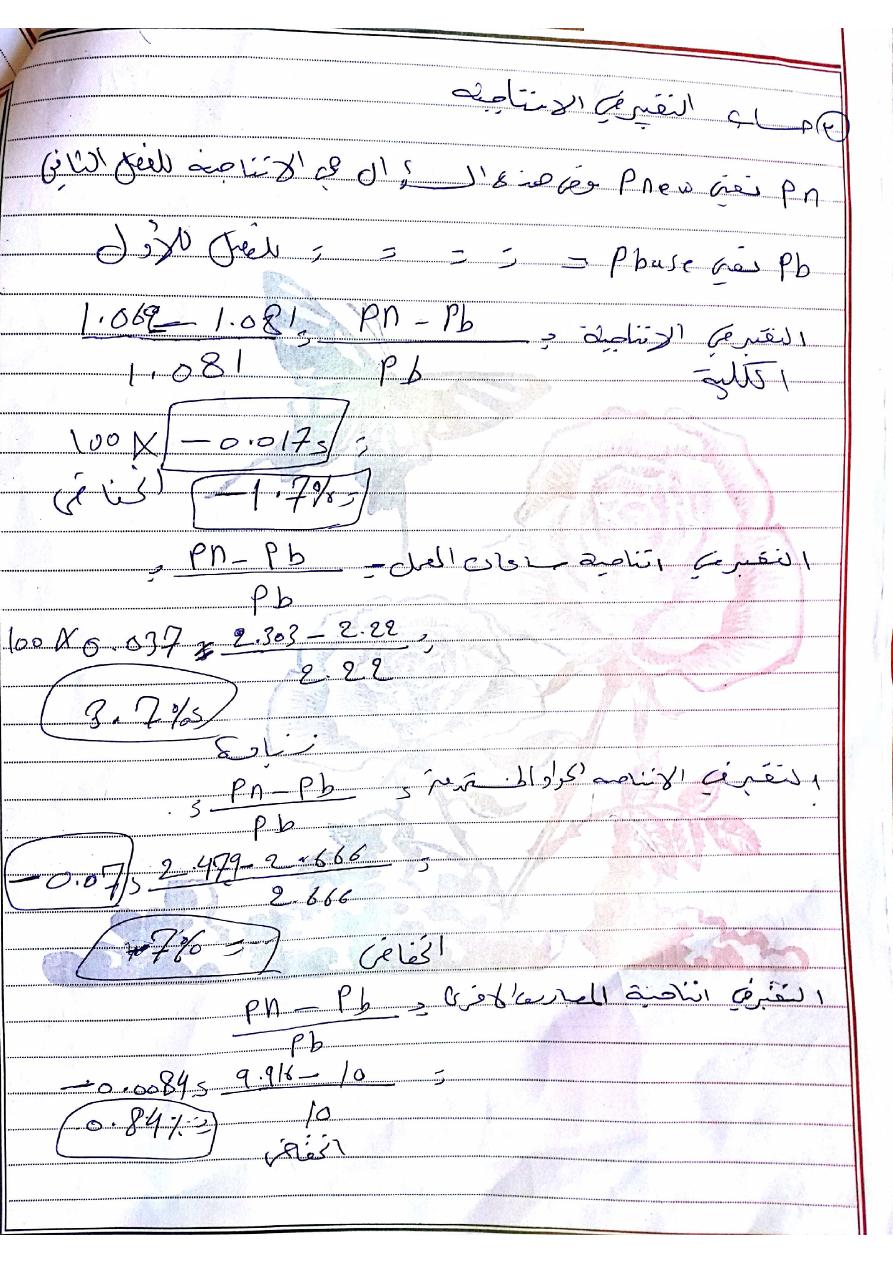 ٢ حساب التغير في الانتاجية
Pn تعني Pnew وفي هذه السؤال هي الانتاجية للفصل الثاني
Pb تعني Pbase = = = = = للفصل الأول
التغير في الانتاجية الكلية = Pn - Pb / Pb = 1.062 - 1.081 / 1.081
= -0.017 X 100
= -1.7% انخفاض
التغير في انتاجية ساعات العمل = Pn - Pb / Pb =
= 2.303 - 2.22 / 2.22 = 0.037 X 100
= 3.7%
زيادة
التغير في الانتاجية المواد المستخدمة = Pn - Pb / Pb =
= 2.479 - 2.666 / 2.666 = -0.07
= -7% انخفاض
التغير في انتاجية المصاريف الاخرى = Pn - Pb / Pb
= 9.916 - 10 / 10 = -0.0084
= 0.84%
انخفاض